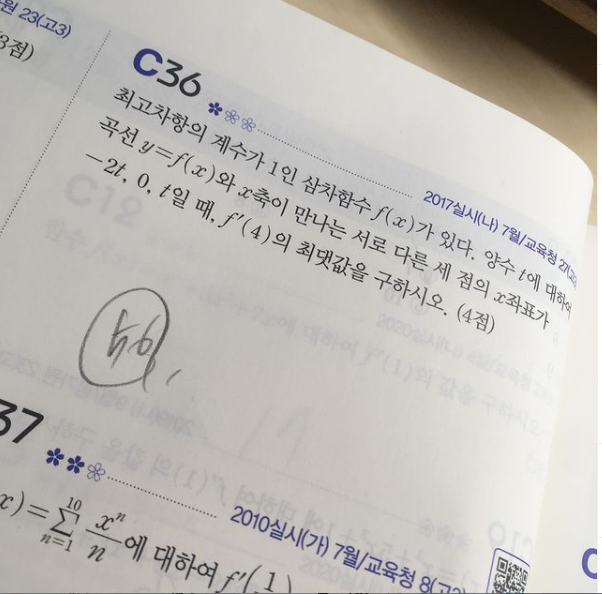 23(고3)
3점)
C36
2017실시(나) 7월/교육청 27(고3)
최고차항의 계수가 1인 삼차함수 f(x)가 있다. 양수 t에 대하여
곡선 y=f(x)와 x축이 만나는 서로 다른 세 점의 x좌표가
-2t, 0, t일 때, f'(4)의 최댓값을 구하시오. (4점)
37
2010실시(가) 7월/교육청 8(고
x)=∑ₙ₌₁¹⁰ xⁿ/n에 대하여 f'(1/
C